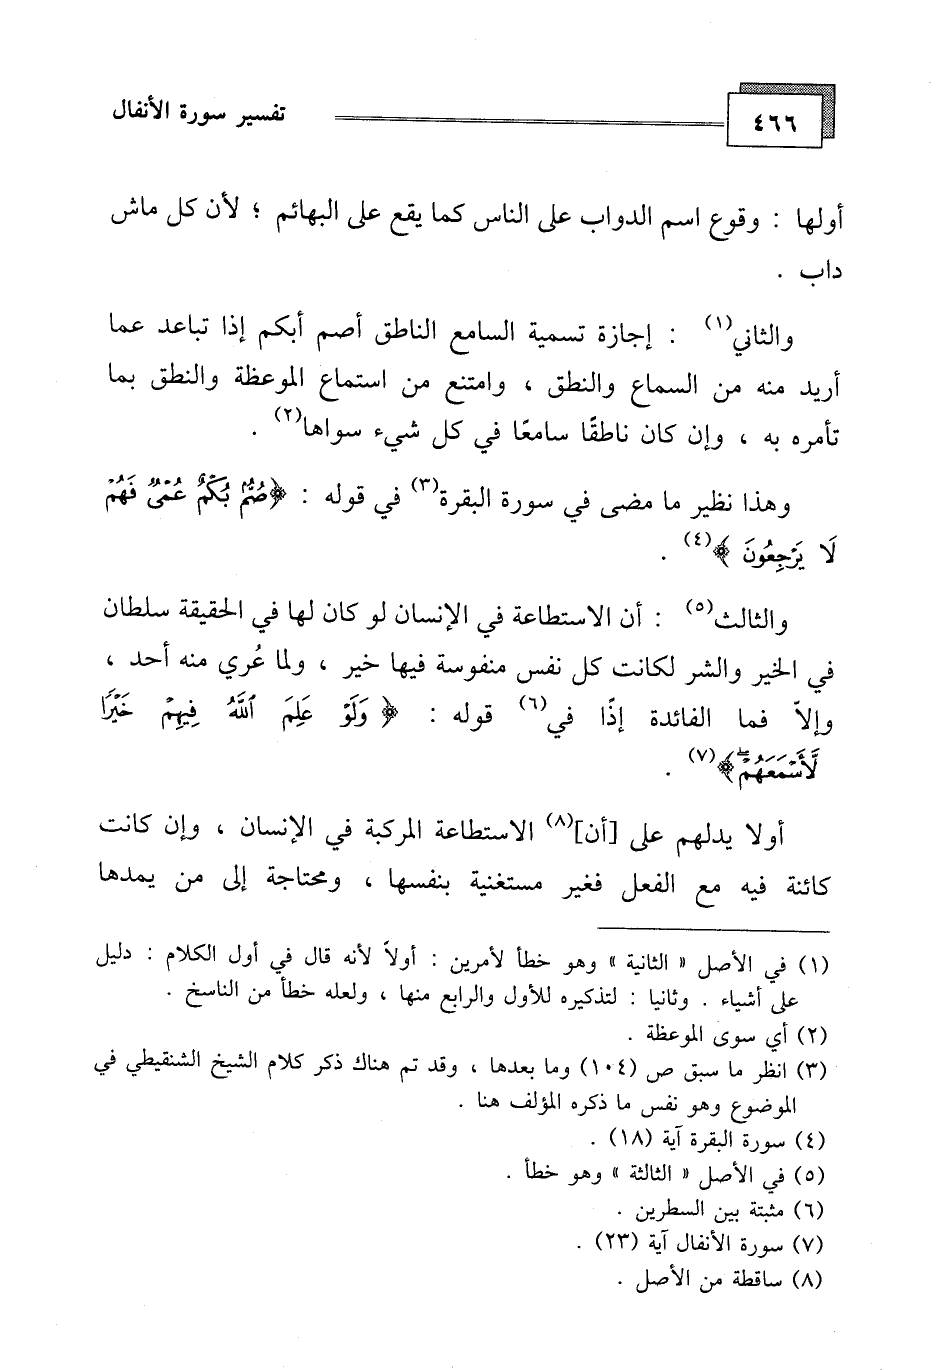 ٤٦٦ تفسير سورة الأنفال
أولها : وقوع اسم الدواب على الناس كما يقع على البهائم ؛ لأن كل ماش
داب .
والثاني(١) : إجازة تسمية السامع الناطق أصم أبكم إذا تباعد عما
أريد منه من السماع والنطق ، وامتنع من استماع الموعظة والنطق بما
تأمره به ، وإن كان ناطقًا سامعًا في كل شيء سواها(٢) .
وهذا نظير ما مضى في سورة البقرة(٣) في قوله : ﴿صُمٌّ بُكْمٌ عُمْىٌ فَهُمْ
لَا يَرْجِعُونَ ﴾(٤) .
والثالث(٥) : أن الاستطاعة في الإنسان لو كان لها في الحقيقة سلطان
في الخير والشر لكانت كل نفس منفوسة فيها خير ، ولما عُري منه أحد ،
وإلاّ فما الفائدة إذًا في(٦) قوله : ﴿ وَلَوْ عَلِمَ ٱللَّهُ فِيهِمْ خَيْرًا
لَّأَسْمَعَهُمْ ۖ﴾(٧) .
أولا يدلهم على [أن](٨) الاستطاعة المركبة في الإنسان ، وإن كانت
كائنة فيه مع الفعل فغير مستغنية بنفسها ، ومحتاجة إلى من يمدها
(١) في الأصل « الثانية » وهو خطأ لأمرين : أولاً لأنه قال في أول الكلام : دليل
على أشياء . وثانيا : لتذكيره للأول والرابع منها ، ولعله خطأ من الناسخ .
(٢) أي سوى الموعظة .
(٣) انظر ما سبق ص (١٠٤) وما بعدها ، وقد تم هناك ذكر كلام الشيخ الشنقيطي في
الموضوع وهو نفس ما ذكره المؤلف هنا .
(٤) سورة البقرة آية (١٨) .
(٥) في الأصل « الثالثة » وهو خطأ .
(٦) مثبتة بين السطرين .
(٧) سورة الأنفال آية (٢٣) .
(٨) ساقطة من الأصل .